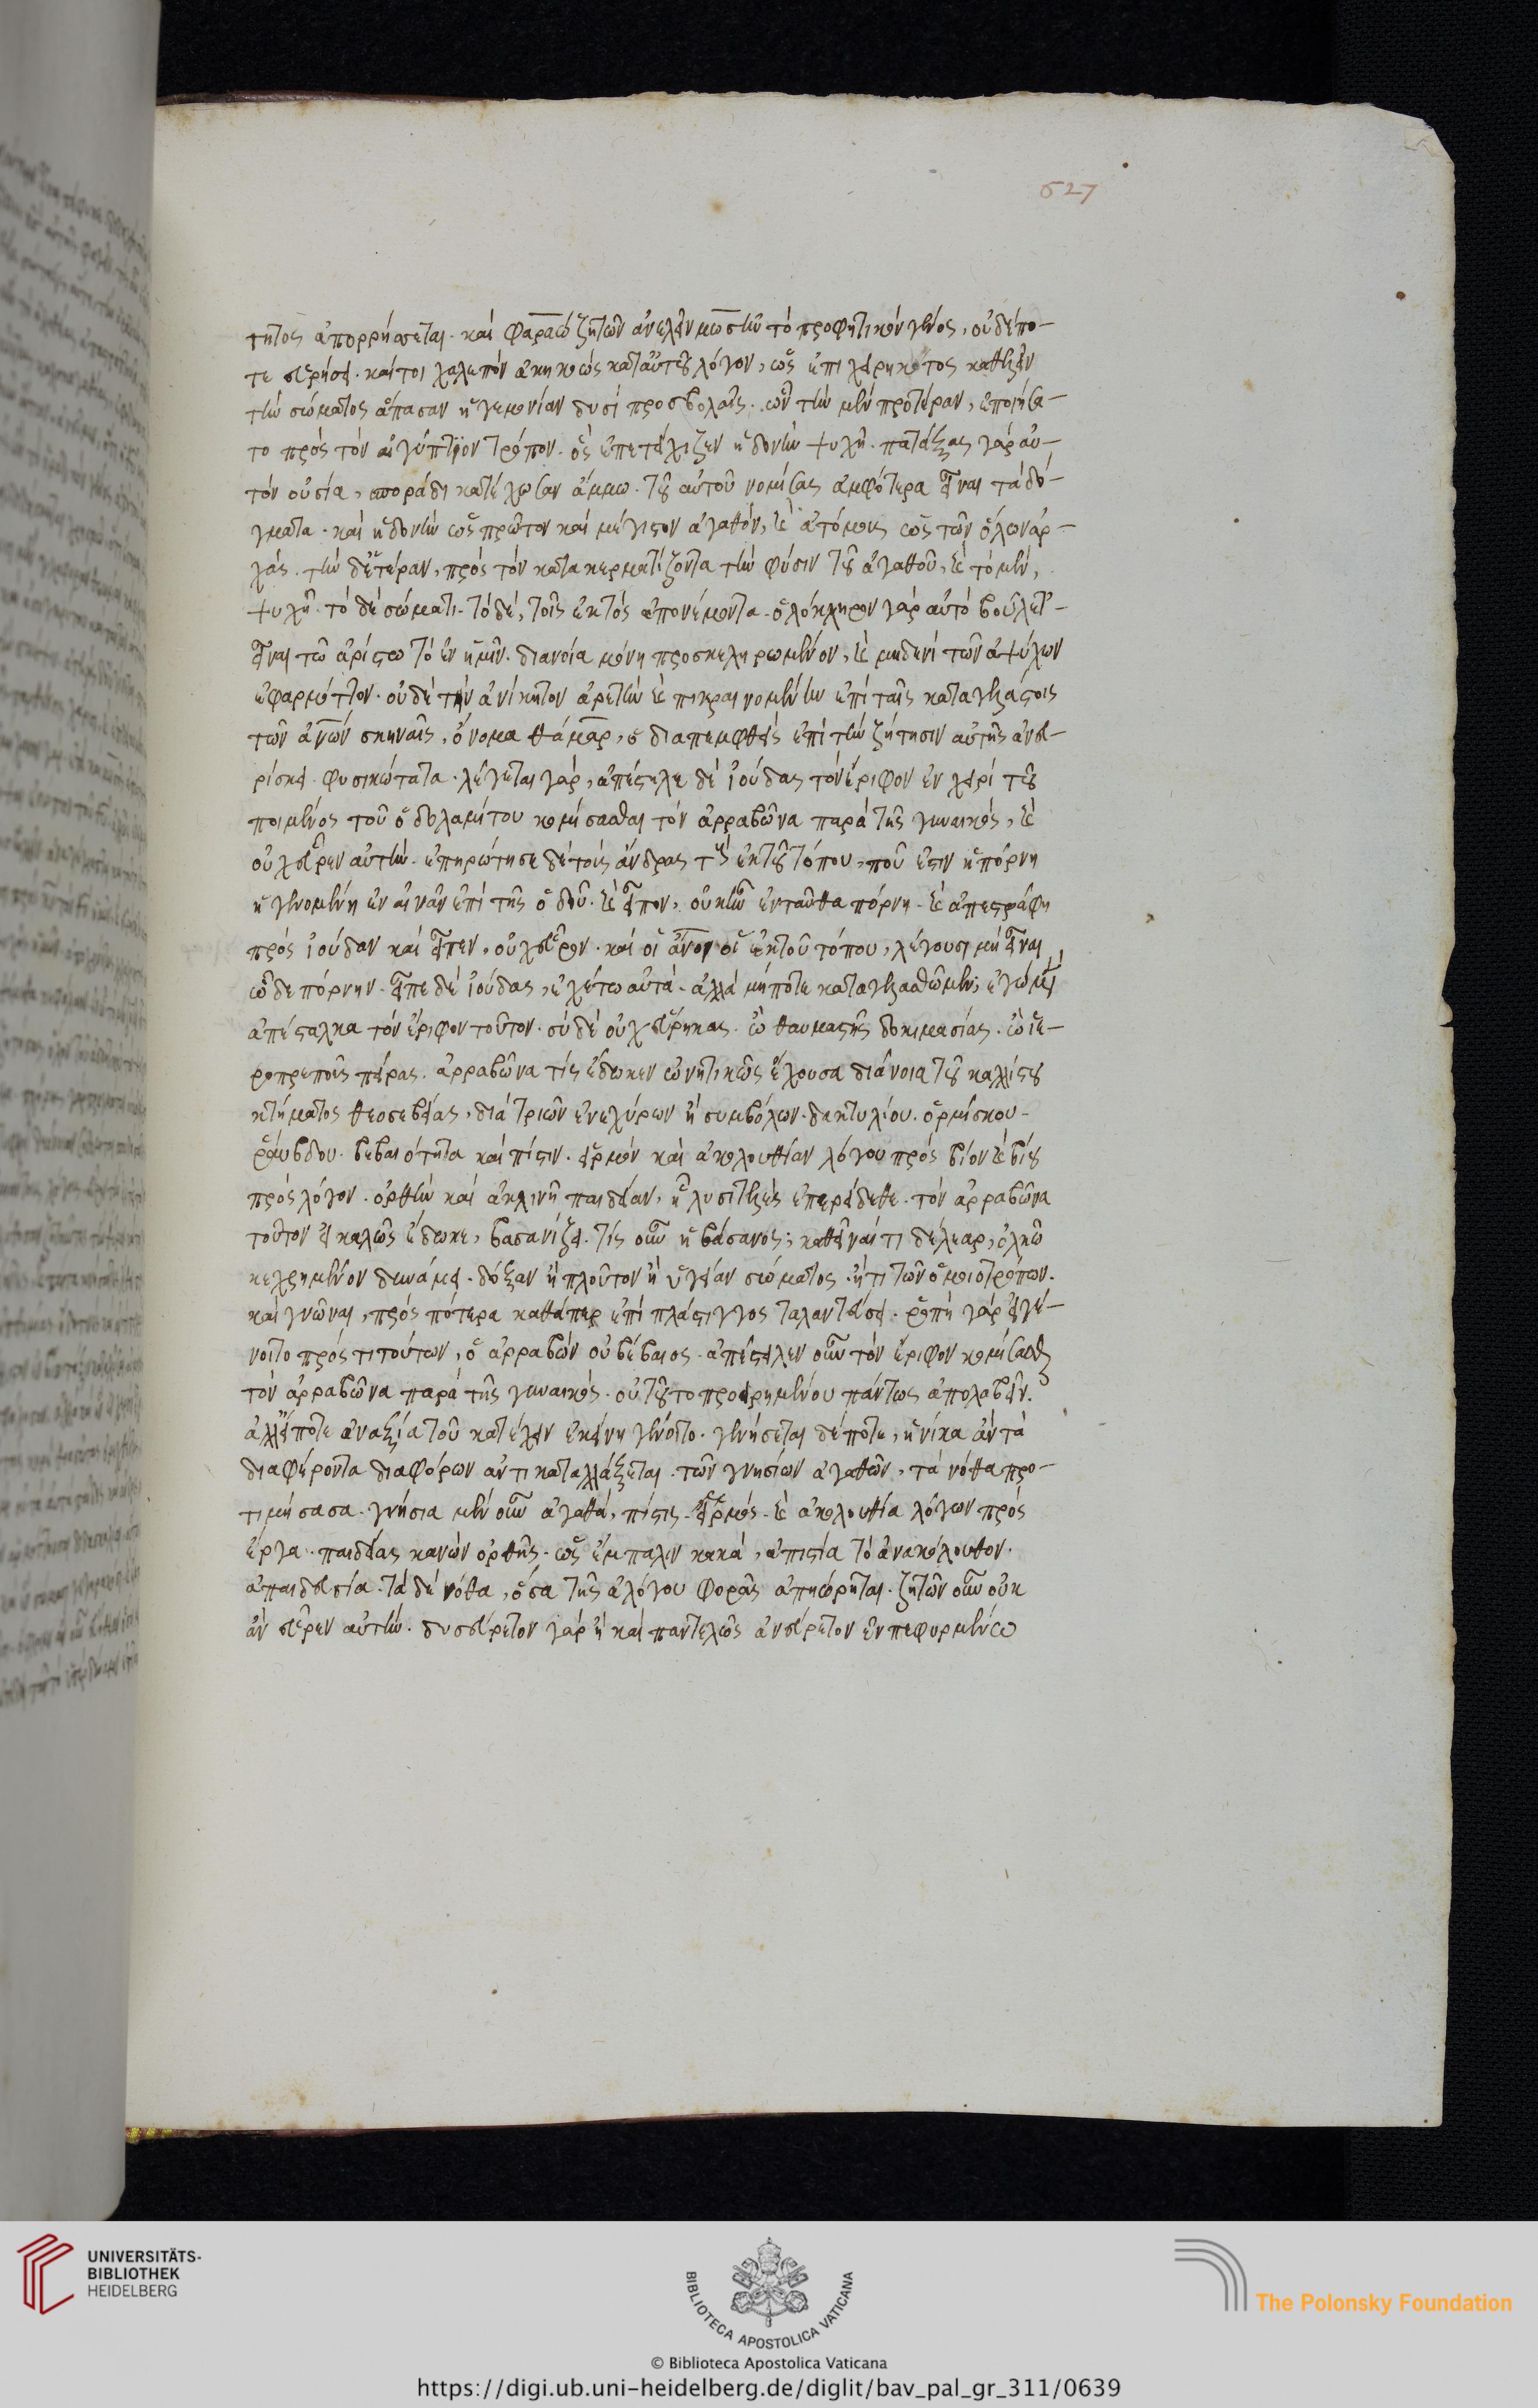 627
τητος ἀπορρήσεται. καὶ φαραὼ ζητῶν ἀνελεῖν μωσῆν τὸ προφητικὸν γένος, οὐδέπο-
τε εὑρήσει. καίτοι χαλεπὸν ἀκηκοὼς κατ' αὐτοῦ λόγον, ὡς ἐπικεχειρηκότος καθελεῖν
τὴν σώματος ἅπασαν ἡγεμονίαν δυσὶ προσβολαῖς. ὧν τὴν μὲν προτέραν, ἐποιήσα-
το πρὸς τὸν αἰγύπτιον τρόπον. ὃς ἐπετείχιζεν ἡδονὴν ψυχῆ. πατάξας γὰρ αὐ-
τὸν οὐσία, σποράδι κατέχωσαν ἄμμω. τοῦ αὐτοῦ νομίσας ἀμφότερα εἶναι τὰ δό-
γματα. καὶ ἡδονὴν ὡς πρῶτον καὶ μέγιστον ἀγαθόν, καὶ ἀτόμους ὡς τῶν ὅλων ἀρ-
χάς. τὴν δ' ἑτέραν, πρὸς τὸν κατακερματίζοντα τὴν φύσιν τοῦ ἀγαθοῦ, καὶ τὸ μὲν,
ψυχῆ. τὸ δὲ σώματι. τὸ δὲ, τοῖς ἐκτὸς ἀπονέμοντα. ὁλόκληρον γὰρ αὐτὸ βούλετ-
εἶναι τῶ ἀρίστω τὸ ἐν ἡμῖν. διανοία μόνη προσκεκληρωμένον, καὶ μηδενὶ τῶν ἀψύχων
ἐφαρμόττον. οὐδὲ τὴν ἀνίκητον ἀρετὴν καὶ πικραινομένην ἐπὶ ταῖς καταγελάστοις
τῶν ἀνῶν σπουδαῖς, ὄνομα θάμαρ, ὁ διαπεμφθεὶς ἐπὶ τὴν ζήτησιν αὐτῆς ἀνευ-
ρίσκει. φυσικώτατα. λέγεται γάρ, ἀπέστειλε δὲ ἰούδας τὸν ἔριφον ἐν χειρὶ τοῦ
ποιμένος τοῦ ὀδολαμίτου κομίσασθαι τὸν ἀρραβῶνα παρὰ τῆς γυναικός, καὶ
οὐχ εὗρεν αὐτήν. ἐπηρώτησε δὲ τοὺς ἄνδρας τοὺς ἐκ τοῦ τόπου, ποῦ ἐστιν ἡ πόρνη
ἡ γενομένη ἐν αἰνὰν ἐπὶ τῆς ὁδοῦ. καὶ εἶπον, οὐκ ἦν ἐνταῦθα πόρνη. καὶ ἀπεστράφη
πρὸς ἰούδαν καὶ εἶπεν, οὐχ εὗρον. καὶ οἱ ἄνοι οἱ ἐκ τοῦ τόπου, λέγουσι μὴ εἶναι
ὧδε πόρνην. εἶπε δὲ ἰούδας, ἐχέτω αὐτά. ἀλλὰ μήποτε καταγελασθῶμεν, ἐγὼ μὲν
ἀπέσταλκα τὸν ἔριφον τοῦτον. σὺ δὲ οὐχ εὕρηκας. ὢ θαυμαστῆς δοκιμασίας. ὢ ἱε-
ροπρεποῦς πείρας. ἀρραβῶνα τίς ἔδωκεν ὠνητικῶς ἔχουσα διάνοια τοῦ καλλίστου
κτήματος θεοσεβείας, διὰ τριῶν ἐνεχύρων ἢ συμβόλων. δακτυλίου. ὁρμίσκου.
ῥάβδου. βεβαιότητα καὶ πίστιν. εἱρμὸν καὶ ἀκολουθίαν λόγου πρὸς βίον καὶ βίου
πρὸς λόγον. ὀρθὴν καὶ ἀκλινῆ παιδείαν, ἧ λυσιτελὲς ἐπερείδεσθαι. τὸν ἀρραβῶνα
τοῦτον εἰ καλῶς ἔδωκε, βασανίζει. τίς οὖν ἡ βάσανος; καθεῖναί τι δέλεαρ, ὁλκῶ
κεχρημένον δυνάμει. δόξαν ἢ πλοῦτον ἢ ὑγείαν σώματος. ἤ τι τῶν ὁμοιοτρόπων.
καὶ γνῶναι, πρὸς πότερα καθάπερ ἐπὶ πλάστιγγος ταλαντεύσει. ῥοπὴ γὰρ εἰ γέ-
νοιτο πρός τι τούτων, ὁ ἀρραβὼν οὐ βέβαιος. ἀπέστειλεν οὖν τὸν ἔριφον κομίσασθαι
τὸν ἀρραβῶνα παρὰ τῆς γυναικός. οὐ τοῦτο προειρημένου πάντως ἀπολαβεῖν.
ἀλλ' εἴποτε ἀναξία τοῦ κατέχειν ἐκείνη γένοιτο. γενήσεται δέποτε, ἡνίκα ἂν τὰ
διαφέροντα διαφόρων ἀντικαταλλάξεται. τῶν γνησίων ἀγαθῶν, τὰ νόθα προ-
τιμήσασα. γνήσια μὲν οὖν ἀγαθὰ, πίστις. εἱρμός. καὶ ἀκολουθία λόγων πρὸς
ἔργα. παιδείας κανὼν ὀρθῆς. ὡς ἔμπαλιν κακά, ἀπιστία τὸ ἀνακόλουθον.
ἀπαιδευσία. τὰ δὲ νόθα, ὅσα τῆς ἀλόγου φορᾶς ἀπηώρηται. ζητῶν οὖν οὐκ
ἀνεῦρεν αὐτήν. δυσεύρετον γὰρ ἢ καὶ παντελῶς ἀνεύρετον ἐν πεφυρμένω
UNIVERSITÄTS-
BIBLIOTHEK
HEIDELBERG
BIBLIOTECA APOSTOLICA VATICANA
The Polonsky Foundation
© Biblioteca Apostolica Vaticana
https://digi.ub.uni-heidelberg.de/diglit/bav_pal_gr_311/0639